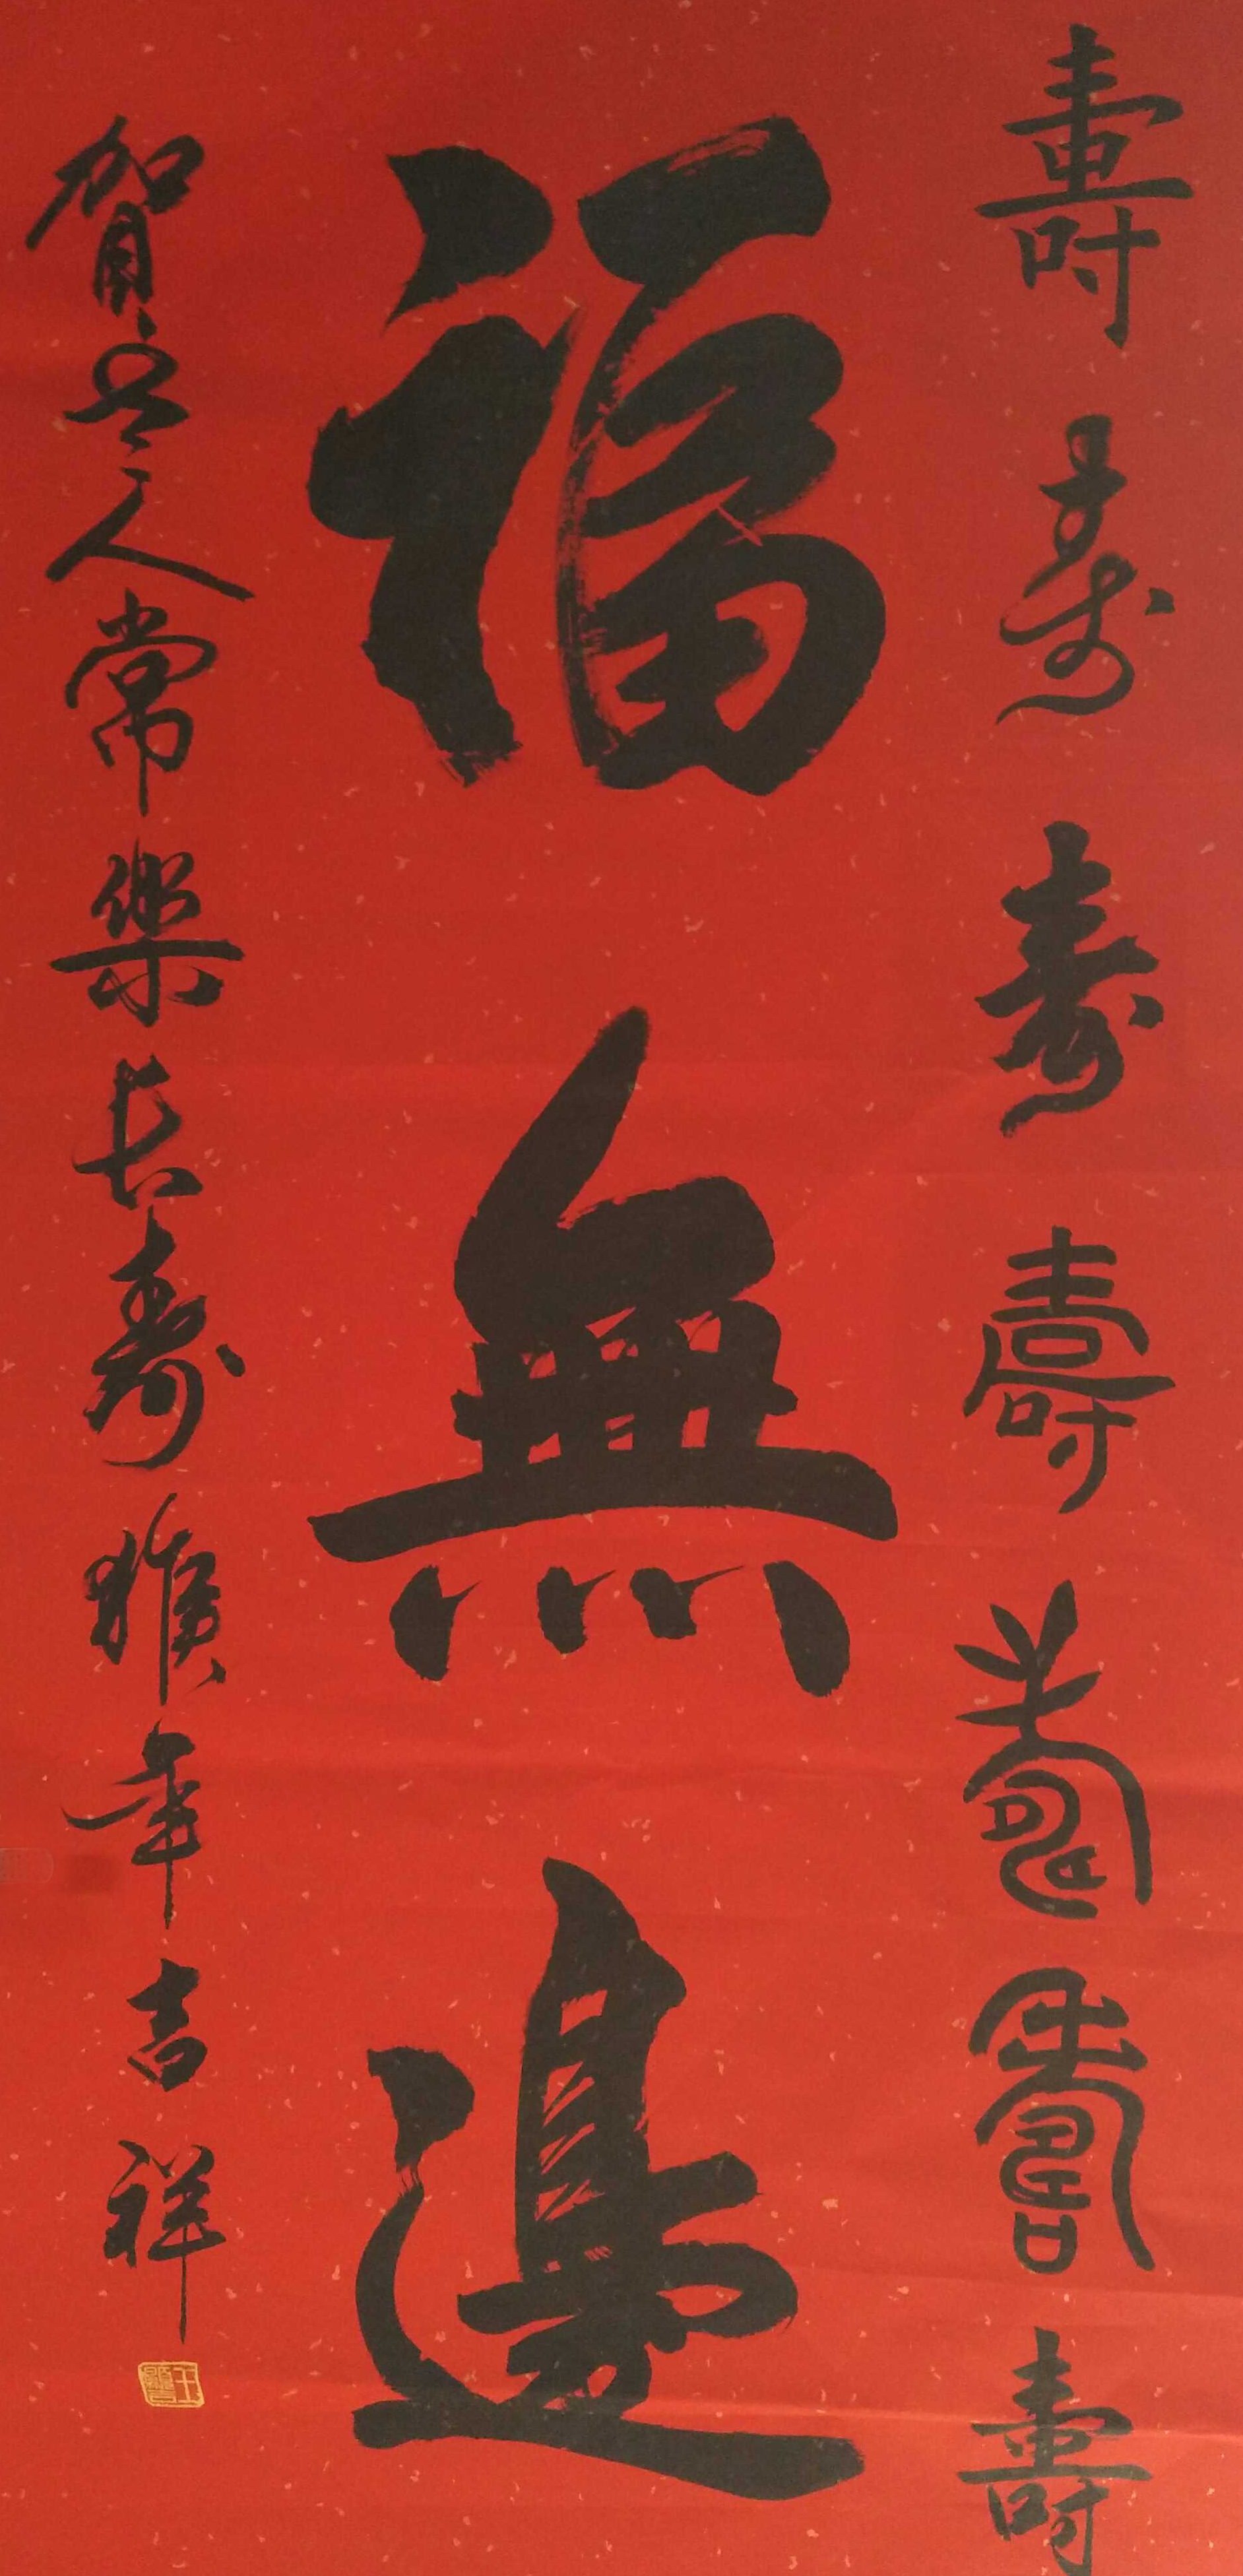 壽壽壽壽壽壽壽
福無邊
賀人常樂長壽猴年吉祥